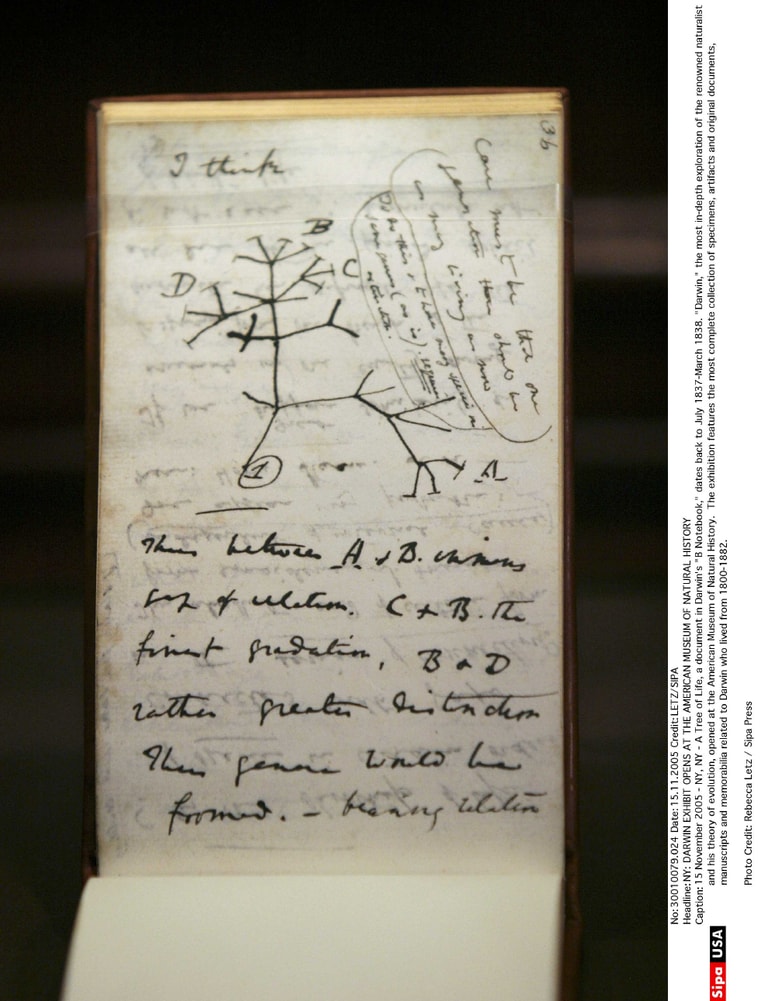 36
I think
Case must be that one
generation then should be
as many living as now
To do this & to have many species in
same genus (as is) requires
extinction.
B
C
D
A
1
Thus between A & B. immens
gap of relation. C & B. the
finest gradation, B & D
rather greater distinction
Thus genera would be
formed. — bearing relation
No:30010079.024 Date:15.11.2005 Credit:LETZ/SIPA
Headline:NY: DARWIN EXHIBIT OPENS AT THE AMERICAN MUSEUM OF NATURAL HISTORY
Caption:15 November 2005 - NY, NY - A Tree of Life, a document in Darwin's "B Notebook," dates back to July 1837-March 1838. "Darwin," the most in-depth exploration of the renowned naturalist
and his theory of evolution, opened at the American Museum of Natural History. The exhibition features the most complete collection of specimens, artifacts and original documents,
manuscripts and memorabilia related to Darwin who lived from 1800-1882.
Photo Credit: Rebecca Letz / Sipa Press
Sipa USA